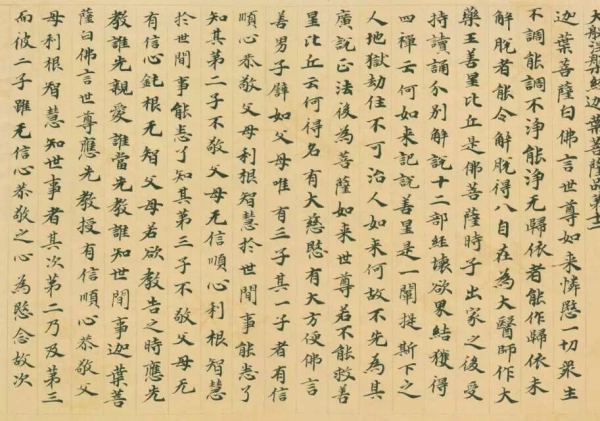 大般涅槃經迦葉菩薩品第十二
迦葉菩薩白佛言世尊如來憐愍一切眾生
不調能調不淨能淨无歸依者能作歸依未
解脫者能令解脫得八自在為大醫師作大
藥王善星比丘是佛菩薩時子出家之後受
持讀誦分別解說十二部經壞欲界結獲得
四禪云何如來記說善星是一闡提斯下之
人地獄劫住不可治人如來何故不先為其
廣說正法後為菩薩如來世尊若不能救善
星比丘云何得名有大慈愍有大方便佛言
善男子譬如父母唯有三子其一子者有信
順心恭敬父母利根智慧於世間事能悉了
知其第二子不敬父母无信順心利根智慧
於世間事能悉了知其第三子不敬父母无
有信心鈍根无智父母若欲教告之時應先
教誰先親愛誰當先教誰知世間事迦葉菩
薩白佛言世尊應先教授有信順心恭敬父
母利根智慧知世事者其次第二乃及第三
而彼二子雖无信心恭敬之心為愍念故次